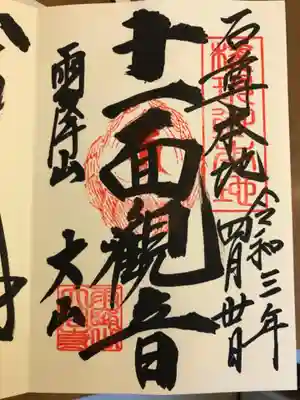 石尊本地
令和三年
四月卅日
十一面観音
雨降山
大山